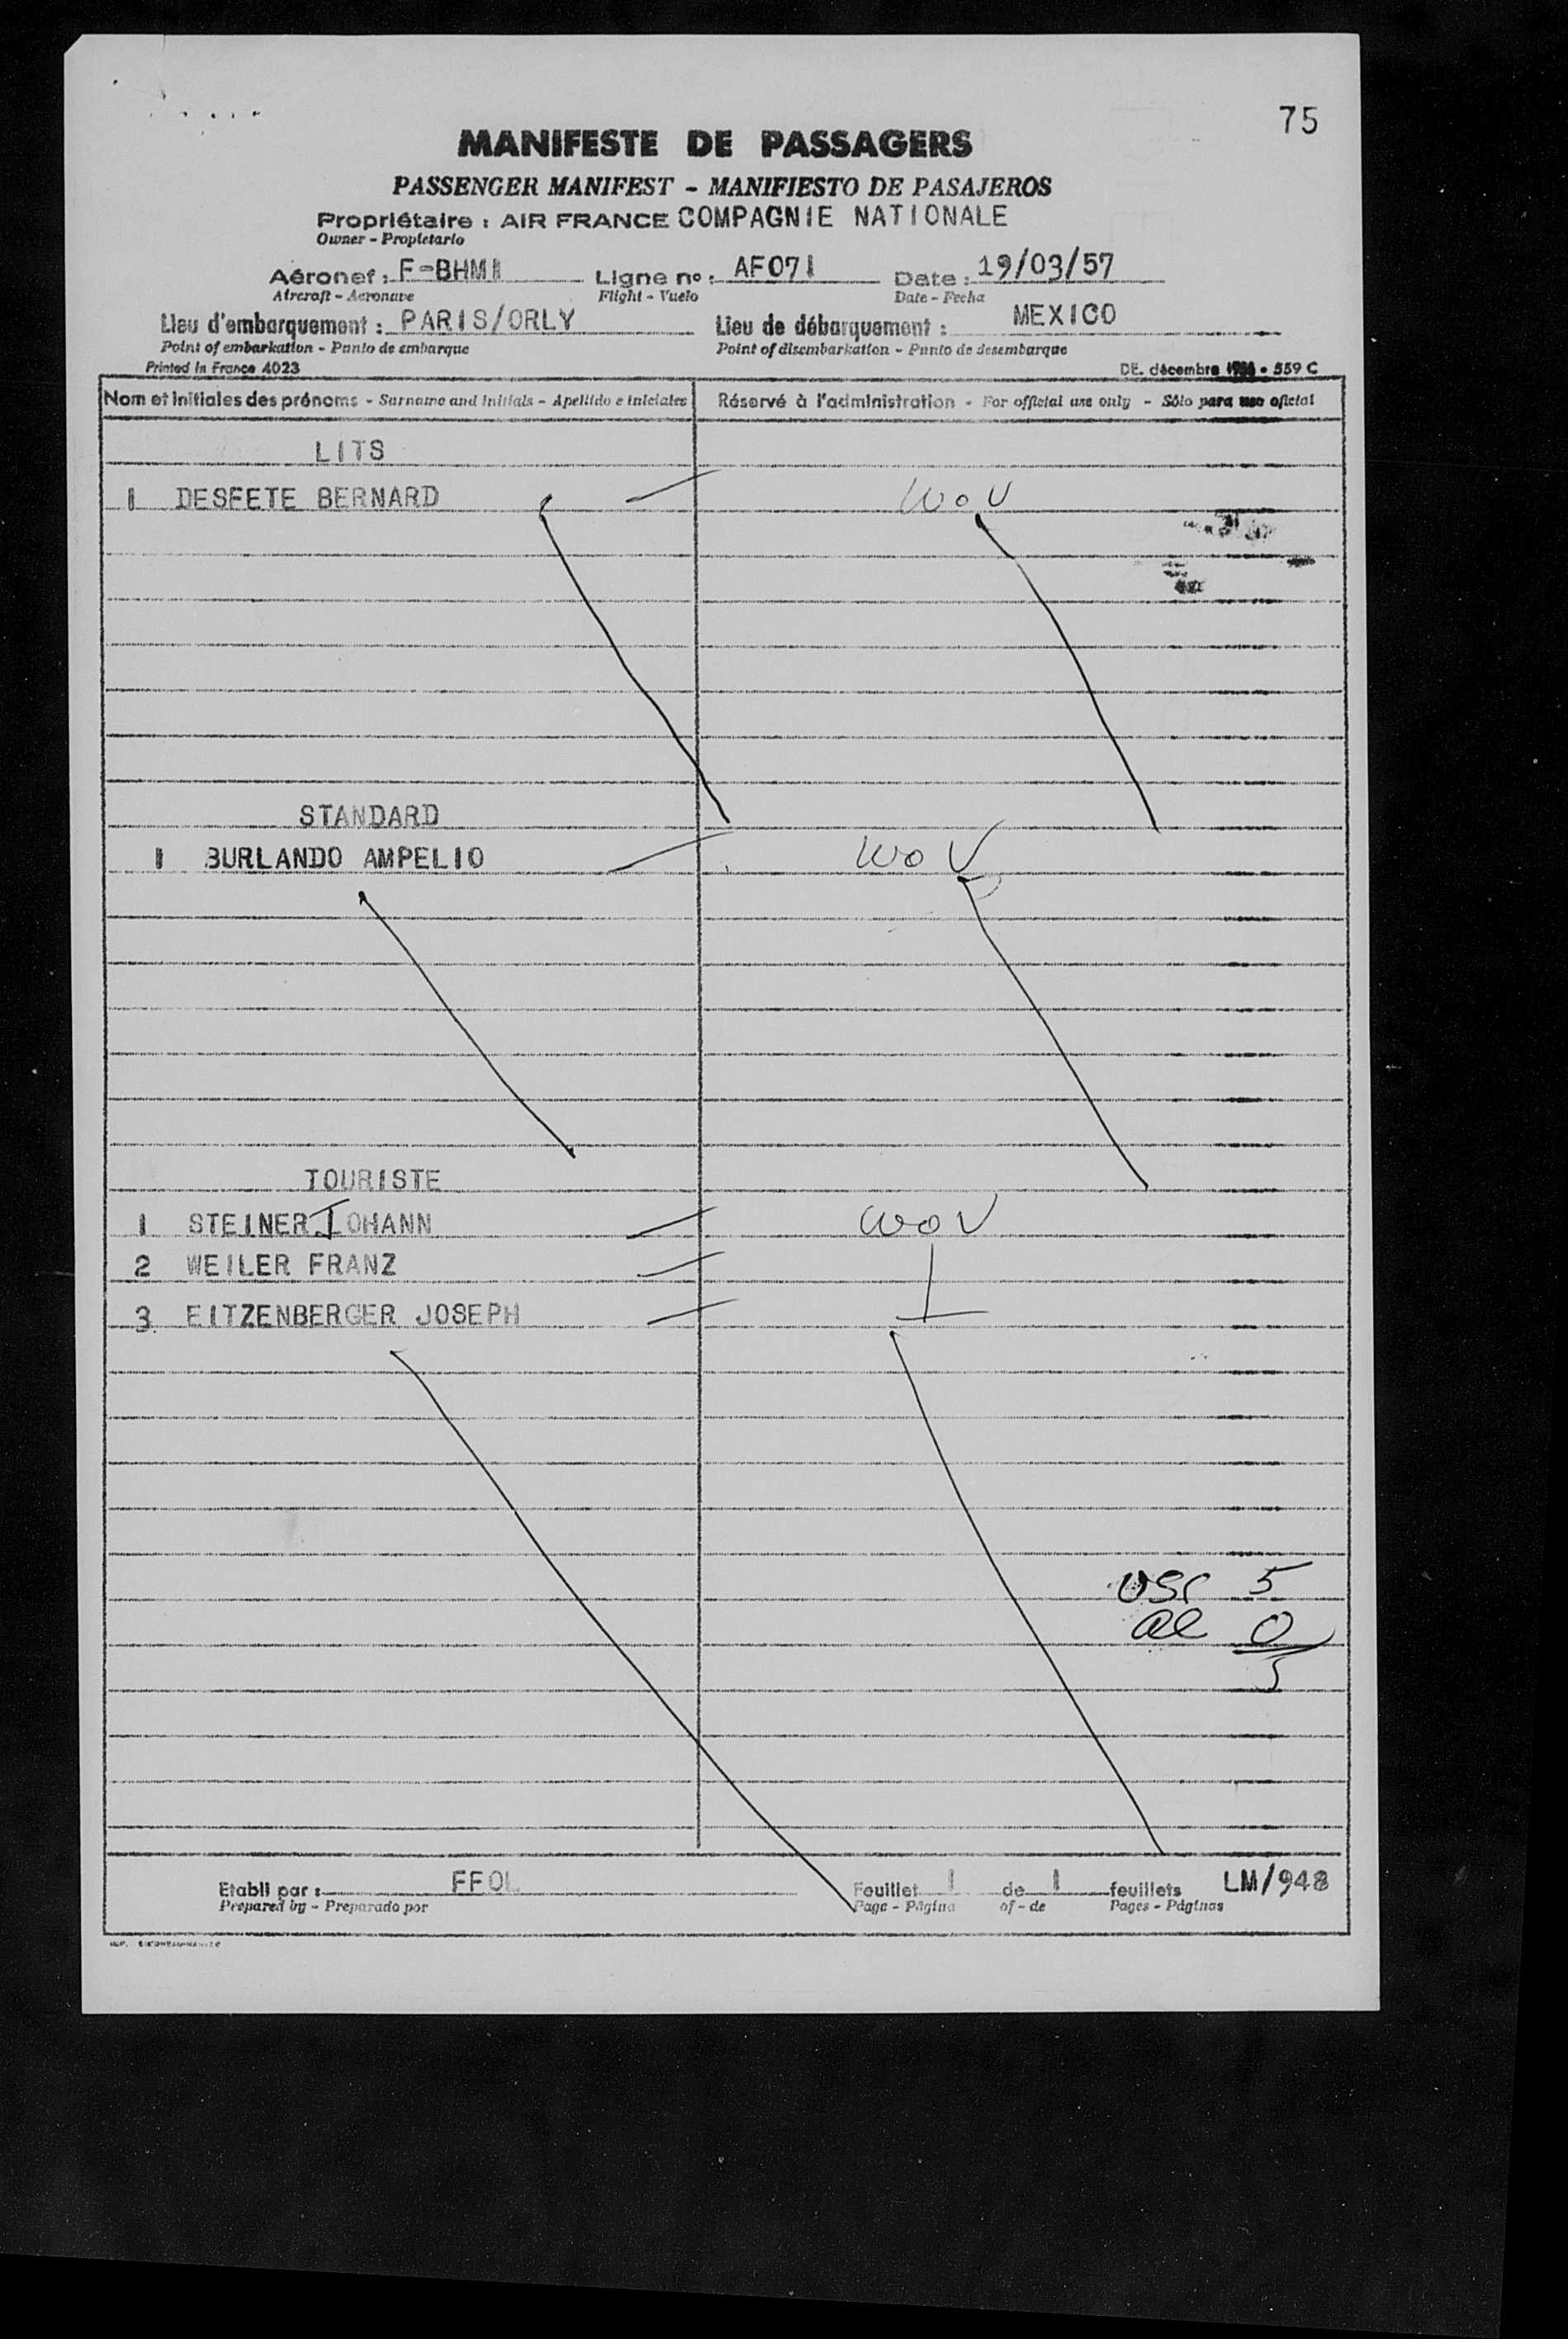 75
MANIFESTE DE PASSAGERS
PASSENGER MANIFEST - MANIFIESTO DE PASAJEROS
Propriétaire : AIR FRANCE COMPAGNIE NATIONALE
Owner - Propietario
Aéronef : F-BHMI Ligne no : AF071 Date : 19/03/57
Aircraft - Aeronave Flight - Vuelo Date - Fecha
Lieu d'embarquement : PARIS/ORLY Lieu de débarquement : MEXICO
Point of embarkation - Punto de embarque Point of disembarkation - Punto de desembarque
Printed in France 4023 DE. décembre 1956 • 559 C
Nom et initiales des prénoms - Surname and initials - Apellido e iniciales Réservé à l'administration - For official use only - Sólo para uso oficial
LITS
1 DESFETE BERNARD WoV
STANDARD
1 BURLANDO AMPELIO WoV
TOURISTE
1 STEINER JOHANN WoV
2 WEILER FRANZ
3 EITZENBERGER JOSEPH
USC 5
Al 0
5
Etabli par : FFOL Feuillet 1 de 1 feuillets LM/948
Prepared by - Preparado por Page - Página of - de Pages - Páginas